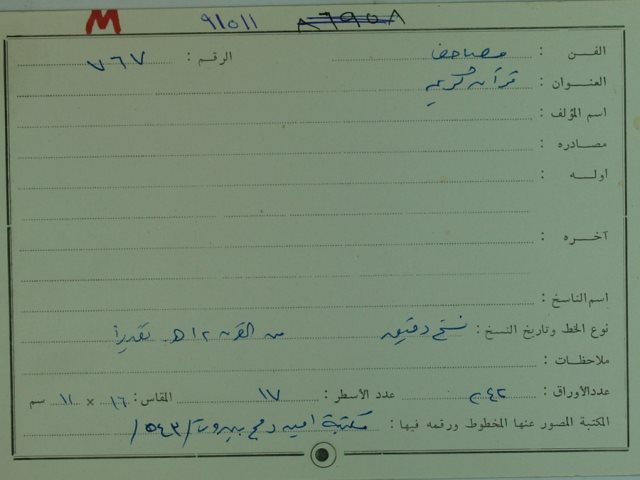 M ٩١٥١١ ٨٦٩٥٨
الفـــن : مصاحف الرقم : ٧٦٧
العنـــوان : قرآن كريم
اسم المؤلف :
مصـادره :
اولـــه :
آخـره :
اسم الناسخ :
نوع الخط وتاريخ النسخ : نسخ دقيق من القرن ١٢ هـ تقديراً
ملاحظـات :
عدد الأوراق : ٢٤٢ عدد الأسطر : ١٧ المقاس : ١٦ × ١١ سم
المكتبة المصور عنها المخطوط ورقمه فيها : مكتبة امين دمج بيروت / ٥٤٣ /